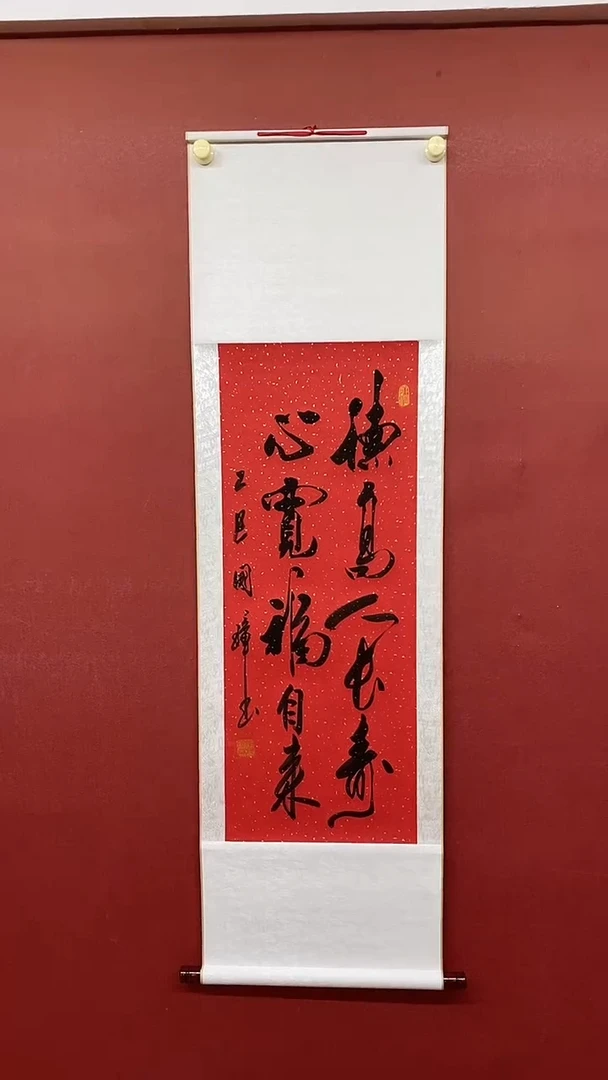 德高人长寿
心宽福自来
国璋书